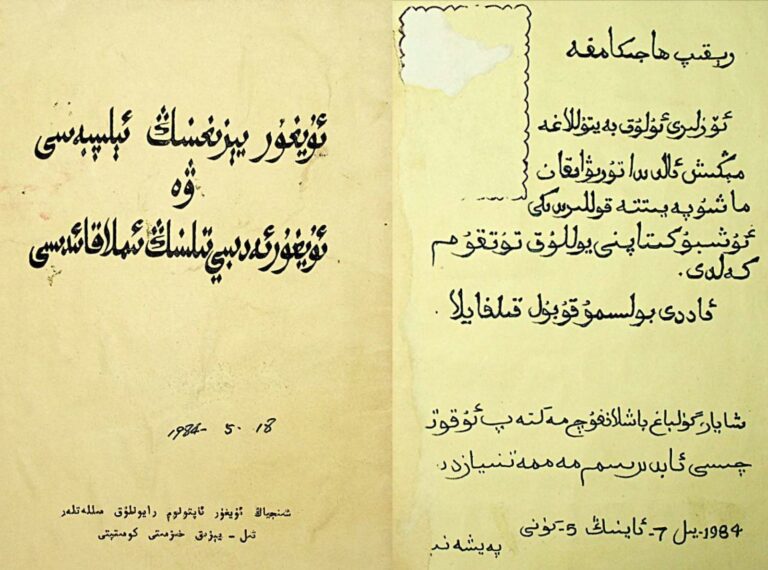 ئۇيغۇر يېزىغىنىڭ ئېلىپبەسى
ۋە
ئۇيغۇر ئەدىبىي تىلىنىڭ ئىملا قائىدىسى
1984- 5. 18
شىنجياڭ ئۇيغۇر ئاپتونوم رايونلۇق مىللەتلەر
تىل - يېزىق خىزمىتى كومىتېتى
رېقىپ ھاجىكامغە
ئۆزلىرى ئۇلۇق بەيتۇللاغە
مېڭىش ئالدىدا تۇرىۋاتقان
ماشۇ پەيىتتە قوللىرىدىكى
ئۇشبۇ كىتاپنى يوللۇق تۇتقۇم
كەلدى.
ئاددى بولىسىمۇ قۇبۇل قىلغايلا.
شايار گۈلباغ باشلانغۇچ مەكتەپ ئوقۇتـ
چىسى ئابدېرىسىم مەممەتنىيازدىن.
1984-يىل 7-ئاينىڭ 5-كۈنى
پەيشەنبە